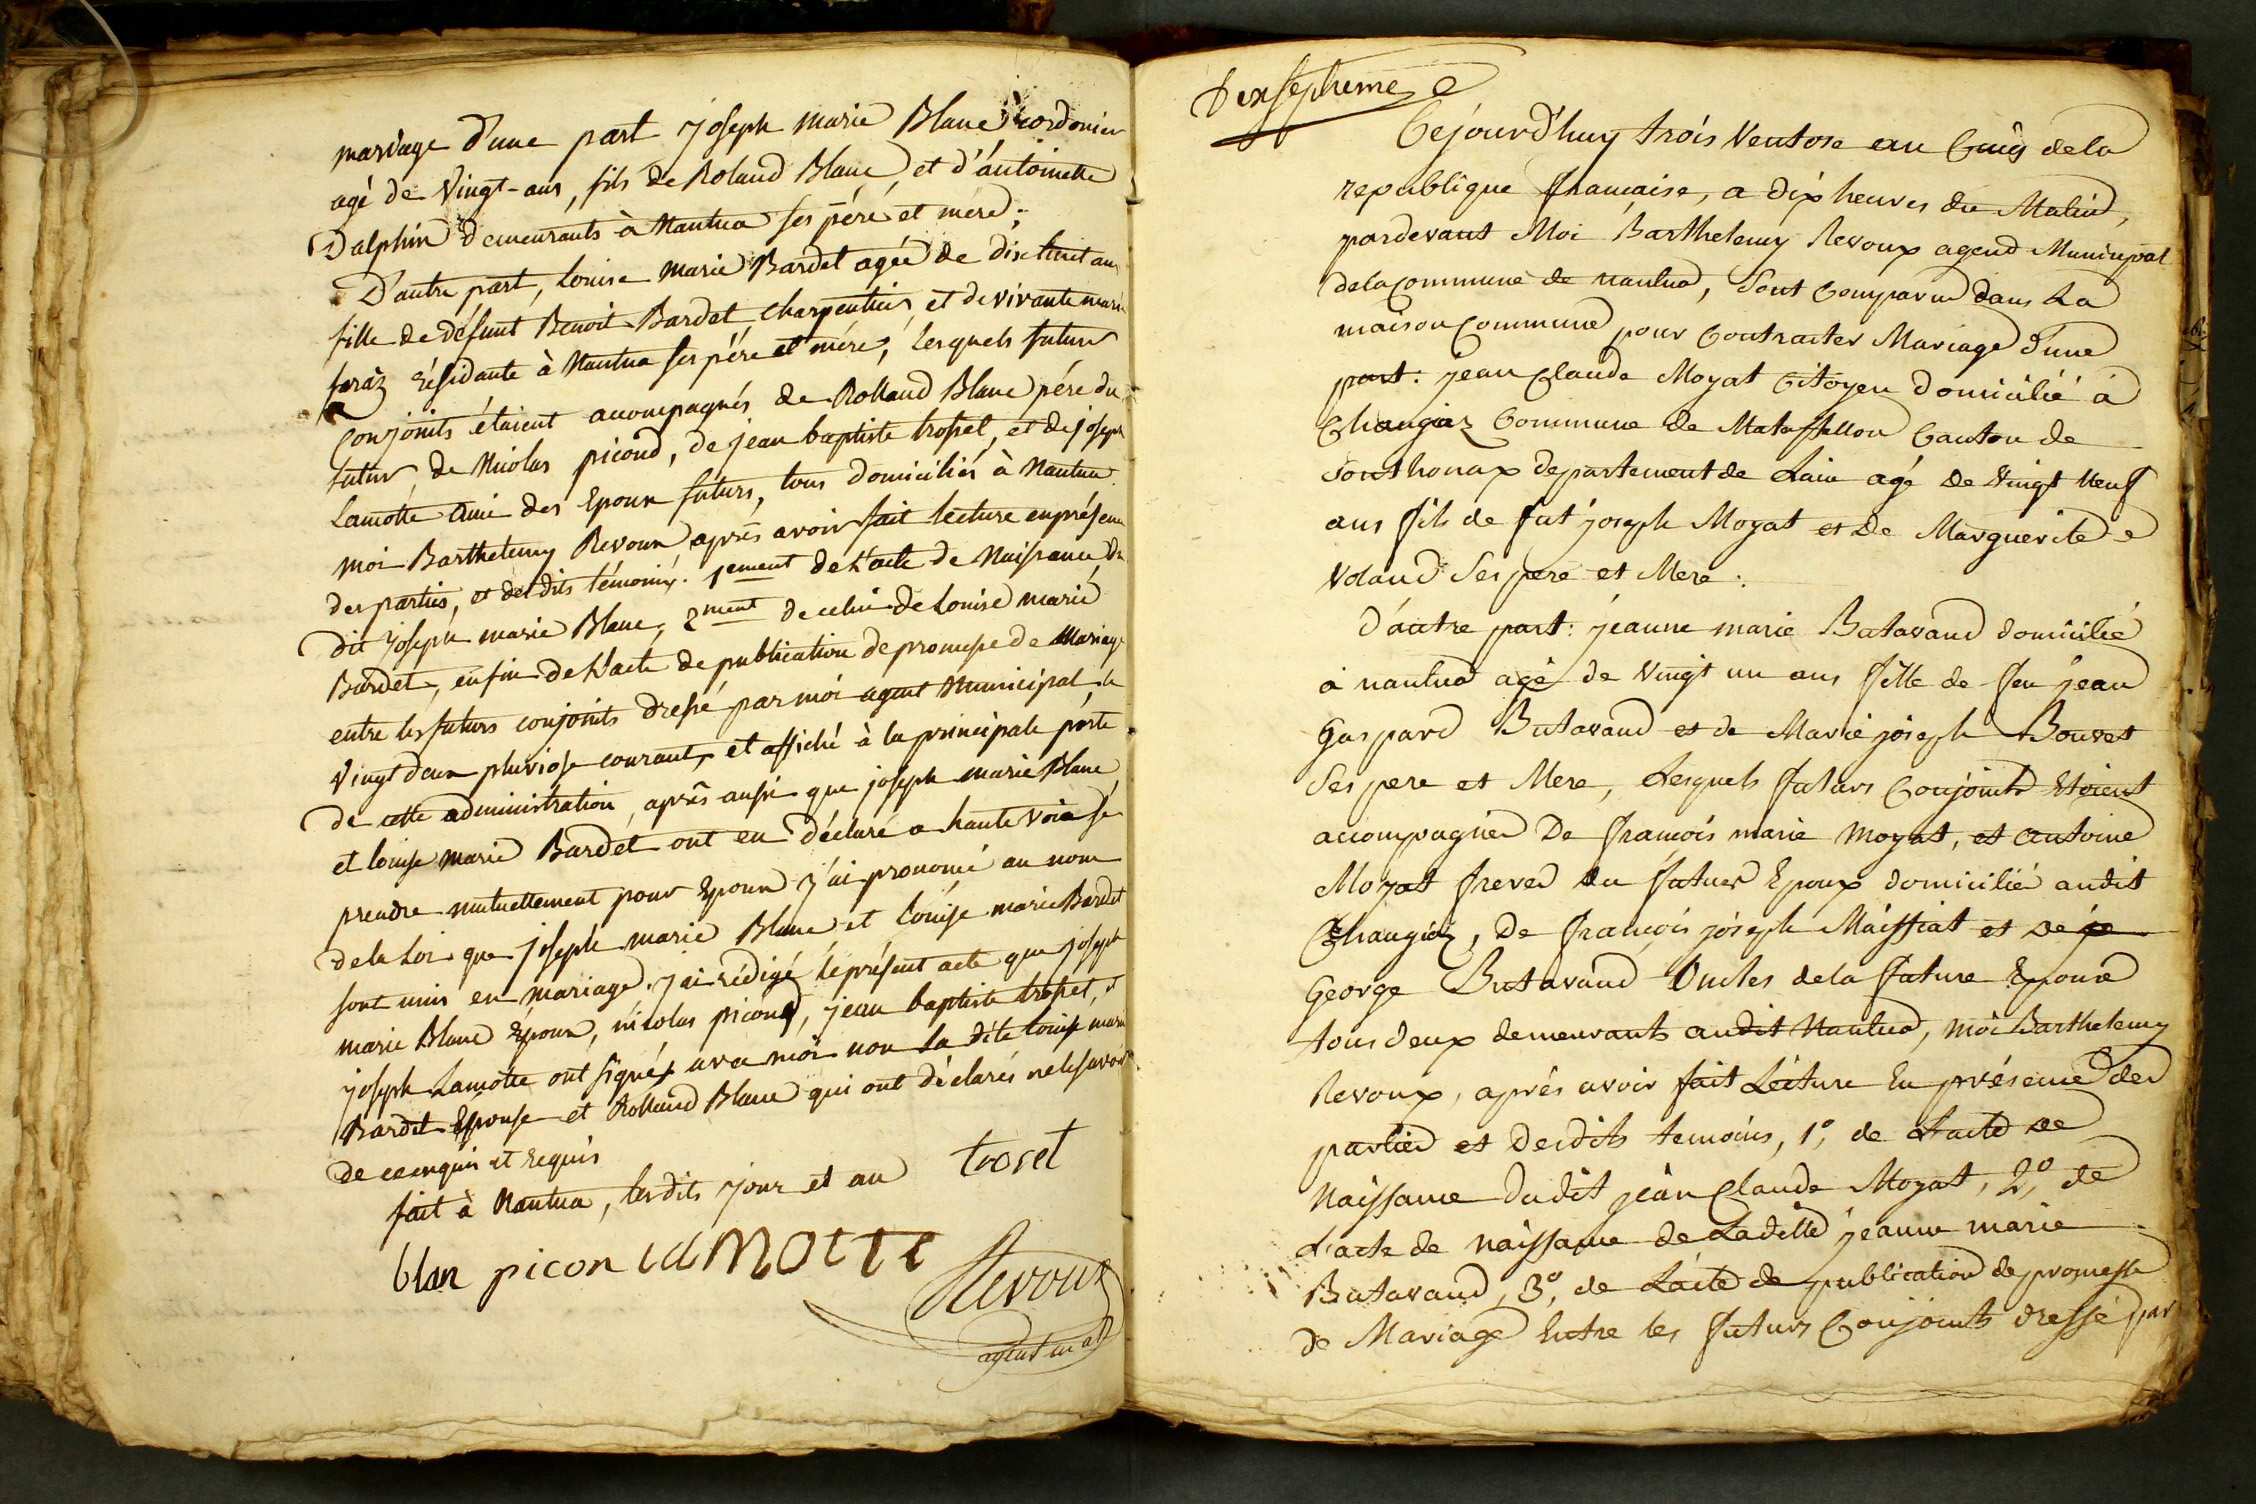 mariage d'une part joseph marie Blanc cordonier
agé de Vingt-ans, fils de Roland Blanc, et d'antoinette
Dalphin demeurants à Nantua ses pére et mére;
D'autre part, louise marie Bardet agée de dix huit ans
fille de défunt Benoit Bardet charpentier, et de vivante marie
résidante à Nantua ses pére et mére, lesquels futurs
Conjoints étaient accompagnés de Rolland Blanc pére du
futur, de Nicolas picond, de jean baptiste trosset, et de joseph
Lamotte ami des Epoux futurs, tous domiciliés à Nantua.
moi Barthelemy Revoux, aprés avoir fait lecture en présence
des parties, et des dits témoins. 1ement de l'acte de Naissance du
dit joseph marie Blanc, 2ment de celui de Louise marie
Bardet, enfin de l'acte de publication de promesse de Mariage
entre les futurs conjoints dressé par moi agent Municipal le
Vingt deux pluviose courant, et affiché à la principale porte
de cette administration, aprés aussi que joseph marie Blanc
et louise marie Bardet ont eu déclaré a haute Voix se
prendre mutuellement pour Epoux j'ai prononcé au nom
de la Loi que joseph marie Blanc et Louise marie Bardet
sont unis en mariage. j'ai rédigé le présent acte que joseph
marie Blanc Epoux, nicolas picond, jean baptiste trosset, et
joseph Lamotte ont signés avec moi non la dite louise marie
Bardet Epouse et Rolland Blanc qui ont déclarés ne le savoir
de ce enquis et requis
fait à Nantua, les dits jour et an
troset
blan picon laMotte
Revoux
agent m al
Dix septieme
Cejourd'huy trois Ventose an Cinq de la
republique francaise, a dix heures du Matin,
pardevant Moi Barthelemy Revoux agend Municipal
de la Commune de nantua, Sont Comparus dans La
maison Commune pour Contracter Mariage d'une
part: jean Claude Moyat Citoyen domicilié à
Changiaz Commune de Matafellon Canton de
Sonthonax departement de Lain agé de Vingt Neuf
ans fils de fut joseph Moyat et De Marguerite
Voland Ses pere et Mere:
d'autre part: jeanne marie Batavand domicilié
à nantua agé de Vingt un ans fille de feu jean
Gaspard Butavand et de Marie joseph Bouvet
Ses pere et Mere, Lesquels futurs Conjoints Etoient
accompagnés De francois marie Moyat, et antoine
Moyat freres du futurs Epoux domicilié audit
Changiaz, De francois joseph Maissiat et de je
George Butavand Oncles de la future Epouse
tous deux demeurants audit Nantua, moi Barthelemy
Revoux, aprés avoir fait Lecture En présence des
parties et Desdits temoins, 1°, de Lacte de
Naissance dudit jean Claude Moyat, 2°, de
L'acte de naissance de Ladille jeanne marie
Batavand, 3°, de Lacte de publication de promesse
de Mariage Entre les futurs Conjoints dressé par